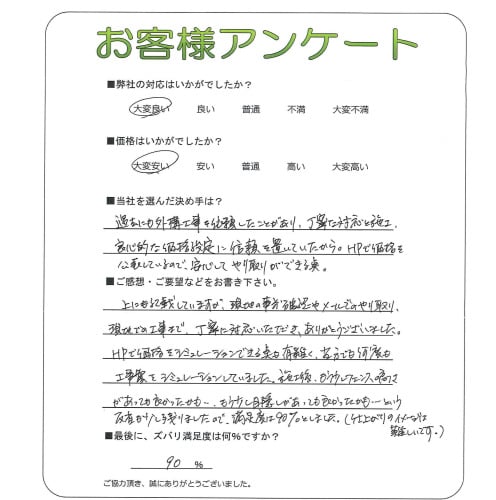 お客様アンケート
■弊社の対応はいかがでしたか?
大変良い 良い 普通 不満 大変不満
■価格はいかがでしたか?
大変安い 安い 普通 高い 大変高い
■当社を選んだ決め手は?
過去にも外構工事を依頼したことがあり、丁寧な対応と施工、
良心的な価格設定に信頼を置いていたから。HPで価格を
公表しているので、安心してやり取りができる点。
■ご感想・ご要望などをお書き下さい。
上にも記載していますが、現地の事前確認やメールでのやり取り、
現地での工事まで、丁寧に対応いただき、ありがとうございました。
HPで価格をシミュレーションできる点も有難く、自分でも何度も
工事費をシミュレーションしていました。施工後、もう少しフェンスの高さ
があっても良かったかも…、もう少し目隠しがあっても良かったかも…という
反省が少し残りましたので、満足度は90%としました。(仕上がりのイメージは
難しいです。)
■最後に、ズバリ満足度は何%ですか?
90 %
ご協力頂き、誠にありがとうございました。